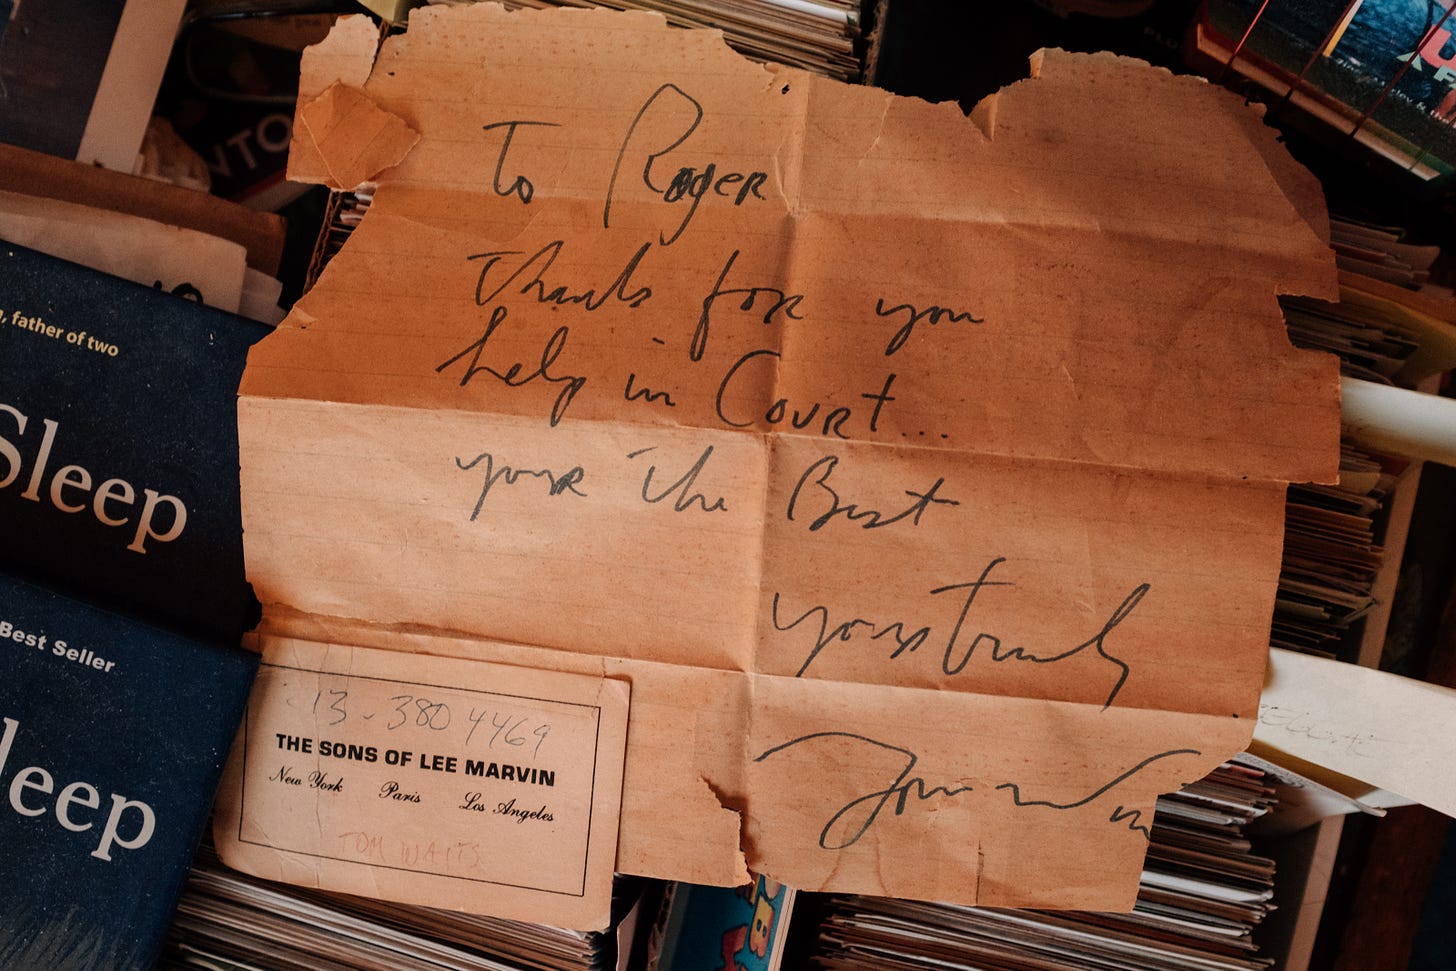 To Roger
Thanks for you
help in Court...
your the Best
yours truly
Tom Wa
13-380 4469
THE SONS OF LEE MARVIN
New York Paris Los Angeles
TOM WAITS
, father of two
Sleep
Best Seller
leep
NTO